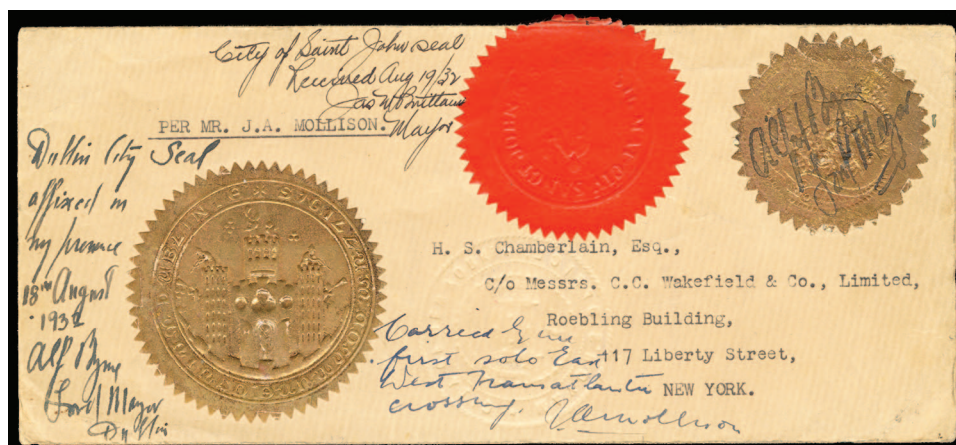 City of Saint John seal
Received Aug 19/32
Mayor
PER MR. J.A. MOLLISON.
Dublin City Seal
affixed in
my presence
18th August
1932
Alf Byrne
Lord Mayor
Dublin
H. S. Chamberlain, Esq.,
C/o Messrs. C.C. Wakefield & Co., Limited,
Roebling Building,
117 Liberty Street,
NEW YORK.
Carried by me
first solo East
West Transatlantic
crossing.
JAMollison